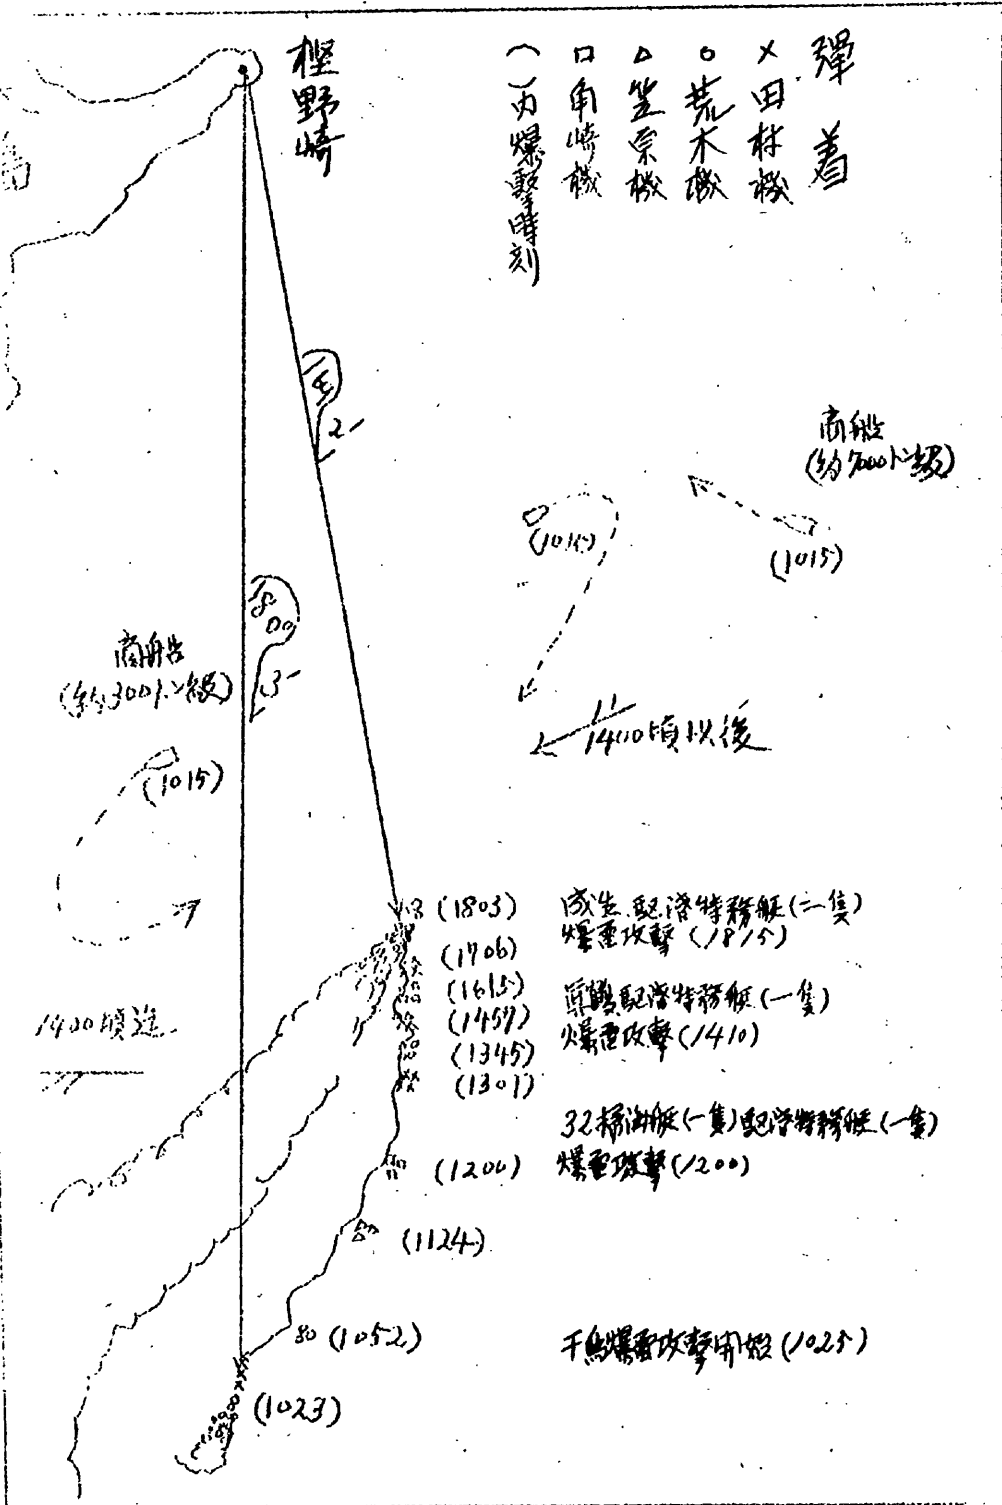 彈着
× 田村機
○ 荒木機
△ 笠原機
□ 角崎機
( )内爆撃時刻
樫野崎
2-
商船
(約7000トン級)
(1015)
(1015)
1800
3-
商船
(約300トン級)
(1015)
1400頃以後
1400頃迄
(1803)
(1706)
(1615)
(1457)
(1345)
(1301)
(1200)
(1124)
(1052)
(1023)
成生、配港特務艇(二隻)
爆雷攻撃(1815)
真鶴配港特務艇(一隻)
爆雷攻撃(1410)
32掃海艇(一隻)配港特務艇(一隻)
爆雷攻撃(1200)
千鳥爆雷攻撃開始(1025)